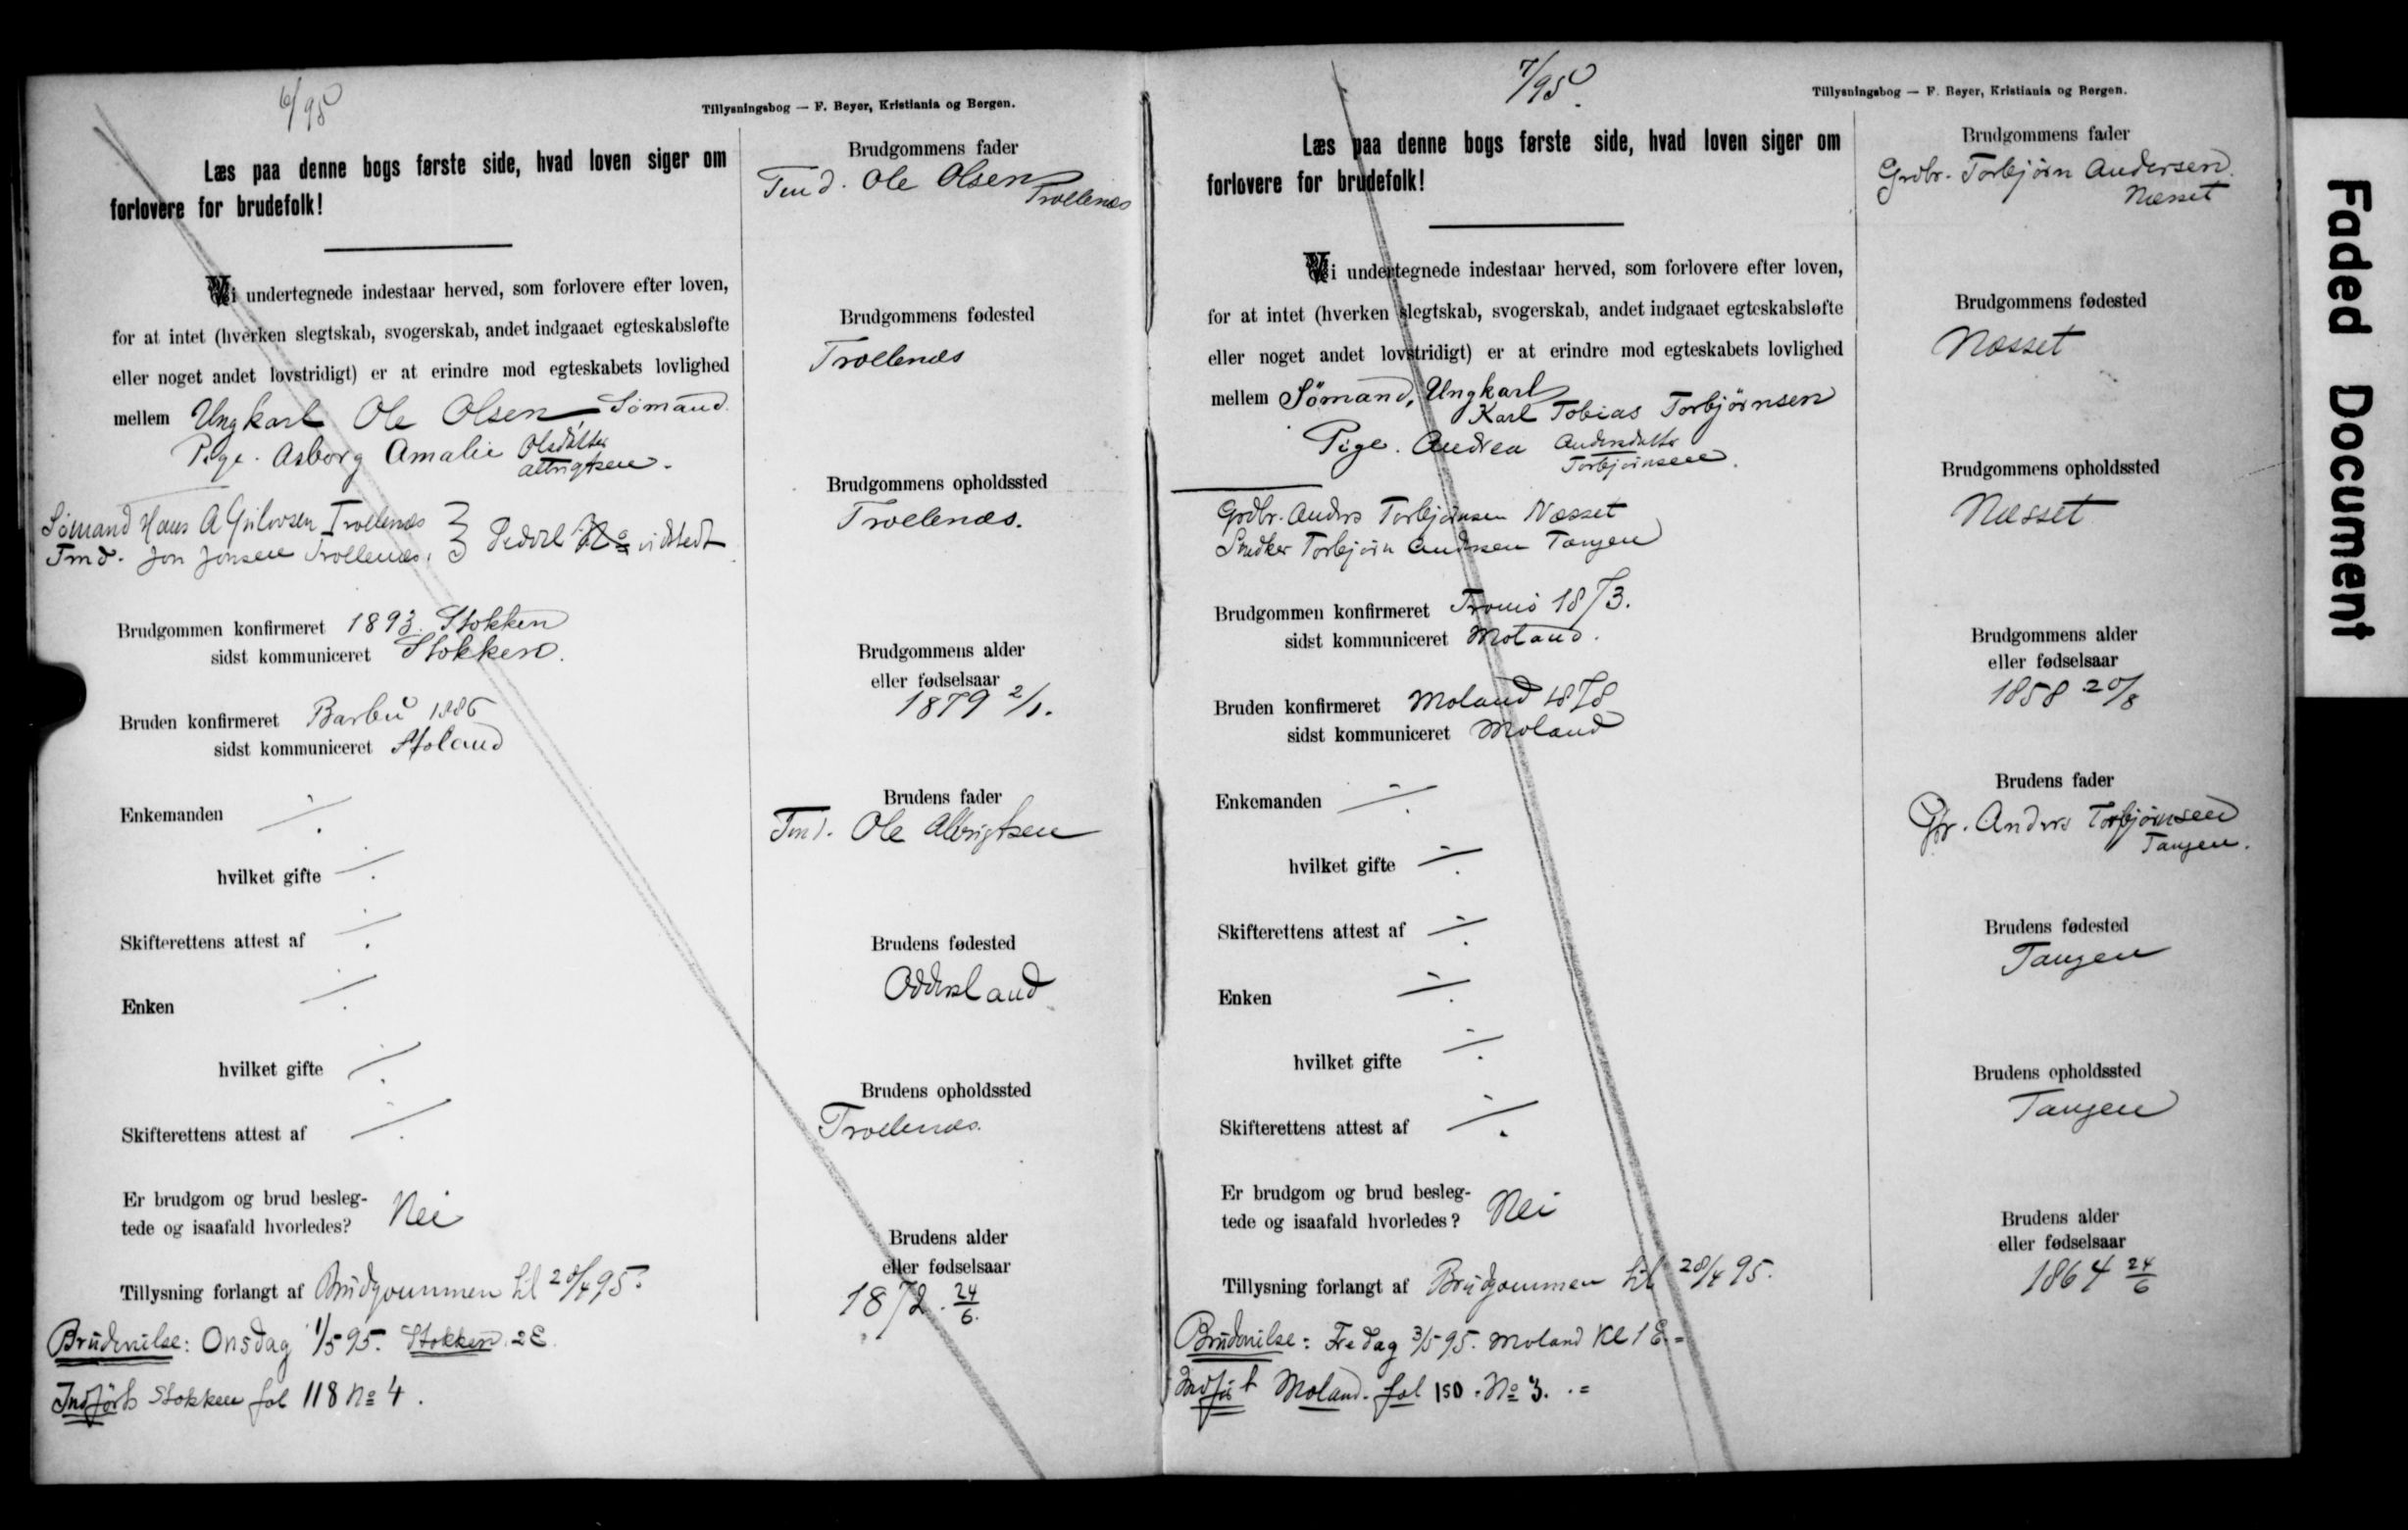 6/95
Tillysningsbog — F. Beyer, Kristiania og Bergen.
Læs paa denne bogs første side, hvad loven siger om
forlovere for brudefolk!
Vi undertegnede indestaar herved, som forlovere efter loven,
for at intet (hverken slegtskab, svogerskab, andet indgaaet egteskabsløfte
eller noget andet lovstridigt) er at erindre mod egteskabets lovlighed
mellem Ungkarl Ole Olsen, Sømand.
Pige. Asborg Amalie Olsdatter
Albrigtsen.
Sømand Hans A Trollenæs
Tmd. Jon Jonsen Trollenæs. vidstedt
Brudgommen konfirmeret 1893. Stokken
sidst kommuniceret Stokken.
Bruden konfirmeret Barbu 1886
sidst kommuniceret
Enkemanden ÷
hvilket gifte ÷
Skifterettens attest af ÷
Enken ÷
hvilket gifte ÷
Skifterettens attest af ÷
Er brudgom og brud besleg-
tede og isaafald hvorledes? Nei
Tillysning forlangt af Brudgommen til 28/4 95.
Brudevielse: Onsdag 1/5 95. Stokken. 2 E.
Indført Stokken fol 118 No 4.
Brudgommens fader
Tmd. Ole Olsen
Trollenæs
Brudgommens fødested
Trollenæs
Brudgommens opholdssted
Trollenæs.
Brudgommens alder
eller fødselsaar
1879 2/1.
Brudens fader
Tmd. Ole Albrigtsen
Brudens fødested
Oddersland
Brudens opholdssted
Trollenæs.
Brudens alder
eller fødselsaar
1872. 24/6.
7/95.
Tillysningsbog — F. Beyer, Kristiania og Bergen.
Læs paa denne bogs første side, hvad loven siger om
forlovere for brudefolk!
Vi undertegnede indestaar herved, som forlovere efter loven,
for at intet (hverken slegtskab, svogerskab, andet indgaaet egteskabsløfte
eller noget andet lovstridigt) er at erindre mod egteskabets lovlighed
mellem Sömand, Ungkarl
Karl Tobias Torbjörnsen
Pige. Andrea Andersdatter
Torbjörnsen.
Grdbr. Anders Torbjörnsen Næsset
Snedker Torbjörn Andersen Tangen
Brudgommen konfirmeret Tromö 1873.
sidst kommuniceret Moland.
Bruden konfirmeret Moland 1878
sidst kommuniceret Moland
Enkemanden ÷
hvilket gifte ÷
Skifterettens attest af ÷
Enken ÷
hvilket gifte ÷
Skifterettens attest af ÷
Er brudgom og brud besleg-
tede og isaafald hvorledes? Nei
Tillysning forlangt af Brudgommen til 28/4 95.
Brudevielse: Fredag 3/5 95. Moland Kl 1 E. =
Indført Moland. fol 150. No 3. . =
Brudgommens fader
Grdbr. Torbjörn Andersen.
Næsset
Brudgommens fødested
Næsset
Brudgommens opholdssted
Næsset
Brudgommens alder
eller fødselsaar
1858 20/8
Brudens fader
Gbr. Anders Torbjörnsen
Tangen.
Brudens fødested
Tangen
Brudens opholdssted
Tangen
Brudens alder
eller fødselsaar
1864 24/6
Faded Document